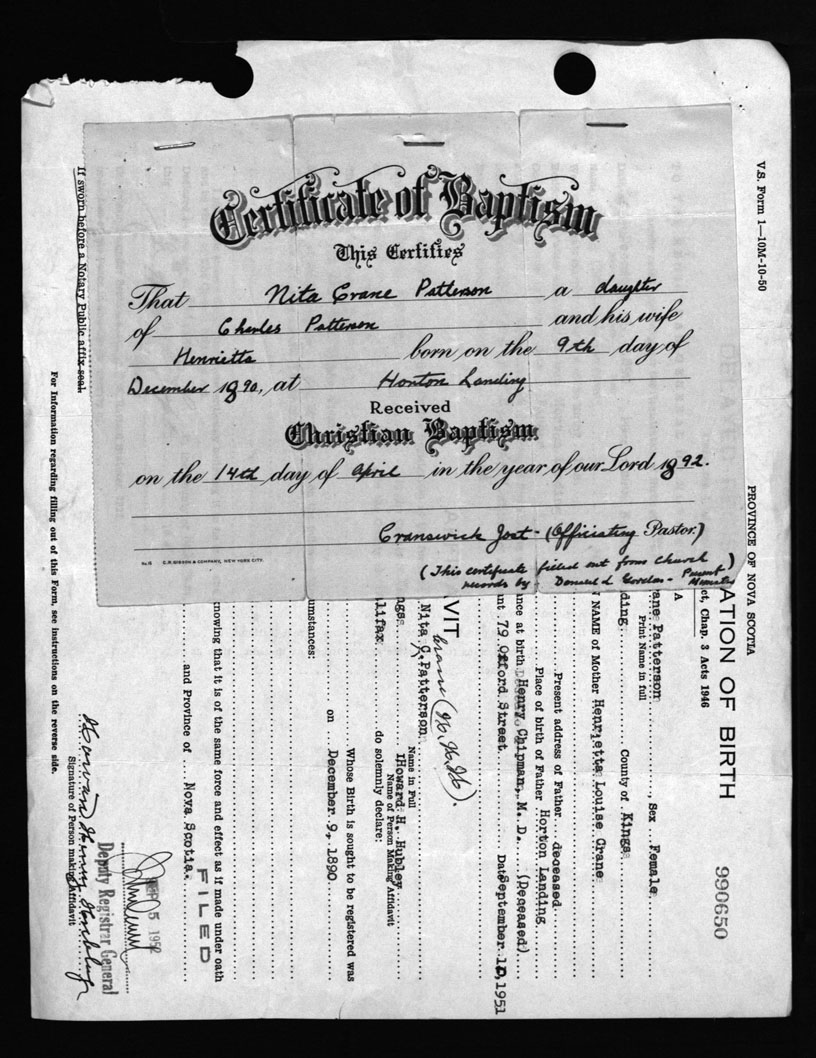 Certificate of Baptism
This Certifies
That Nita Crane Patterson a daughter
of Charles Patterson and his wife
Henrietta born on the 9th day of
December 1890, at Horton Landing
Received
Christian Baptism
on the 14th day of April in the year of our Lord 1892.
Cranswick Jost - (Officiating Pastor.)
(This certificate filled out from church
records by - Donald - Present Minister)
No. 15 C.R. GIBSON & COMPANY, NEW YORK CITY.
V.S. Form 1—10M-10-50
PROVINCE OF NOVA SCOTIA
ATION OF BIRTH
990650
ct, Chap. 3 Acts 1946
A
rane Patterson, Sex Female
Print Name in full
ding County of Kings
N NAME of Mother Henrietta Louise Crane
Present address of Father deceased
Place of birth of Father Horton Landing
nce at birth Henry Chipman, M. D. (Deceased)
nt 79 Offord Street Date September 10, 1951
VIT
Crane (H.H.H.).
Nita C. Patterson
Name in Full
ngs I Howard H. Hubley
Name of Person Making Affidavit
lifax do solemnly declare:
Whose Birth is sought to be registered was
on December 9, 1890
umstances:
nowing that it is of the same force and effect as if made under oath
and Province of Nova Scotia.
FILED
5 1952
Deputy Registrar General
Howard Henry Hubley
Signature of Person making Affidavit
If sworn before a Notary Public affix seal.
For Information regarding filling out of this Form, see Instructions on the reverse side.